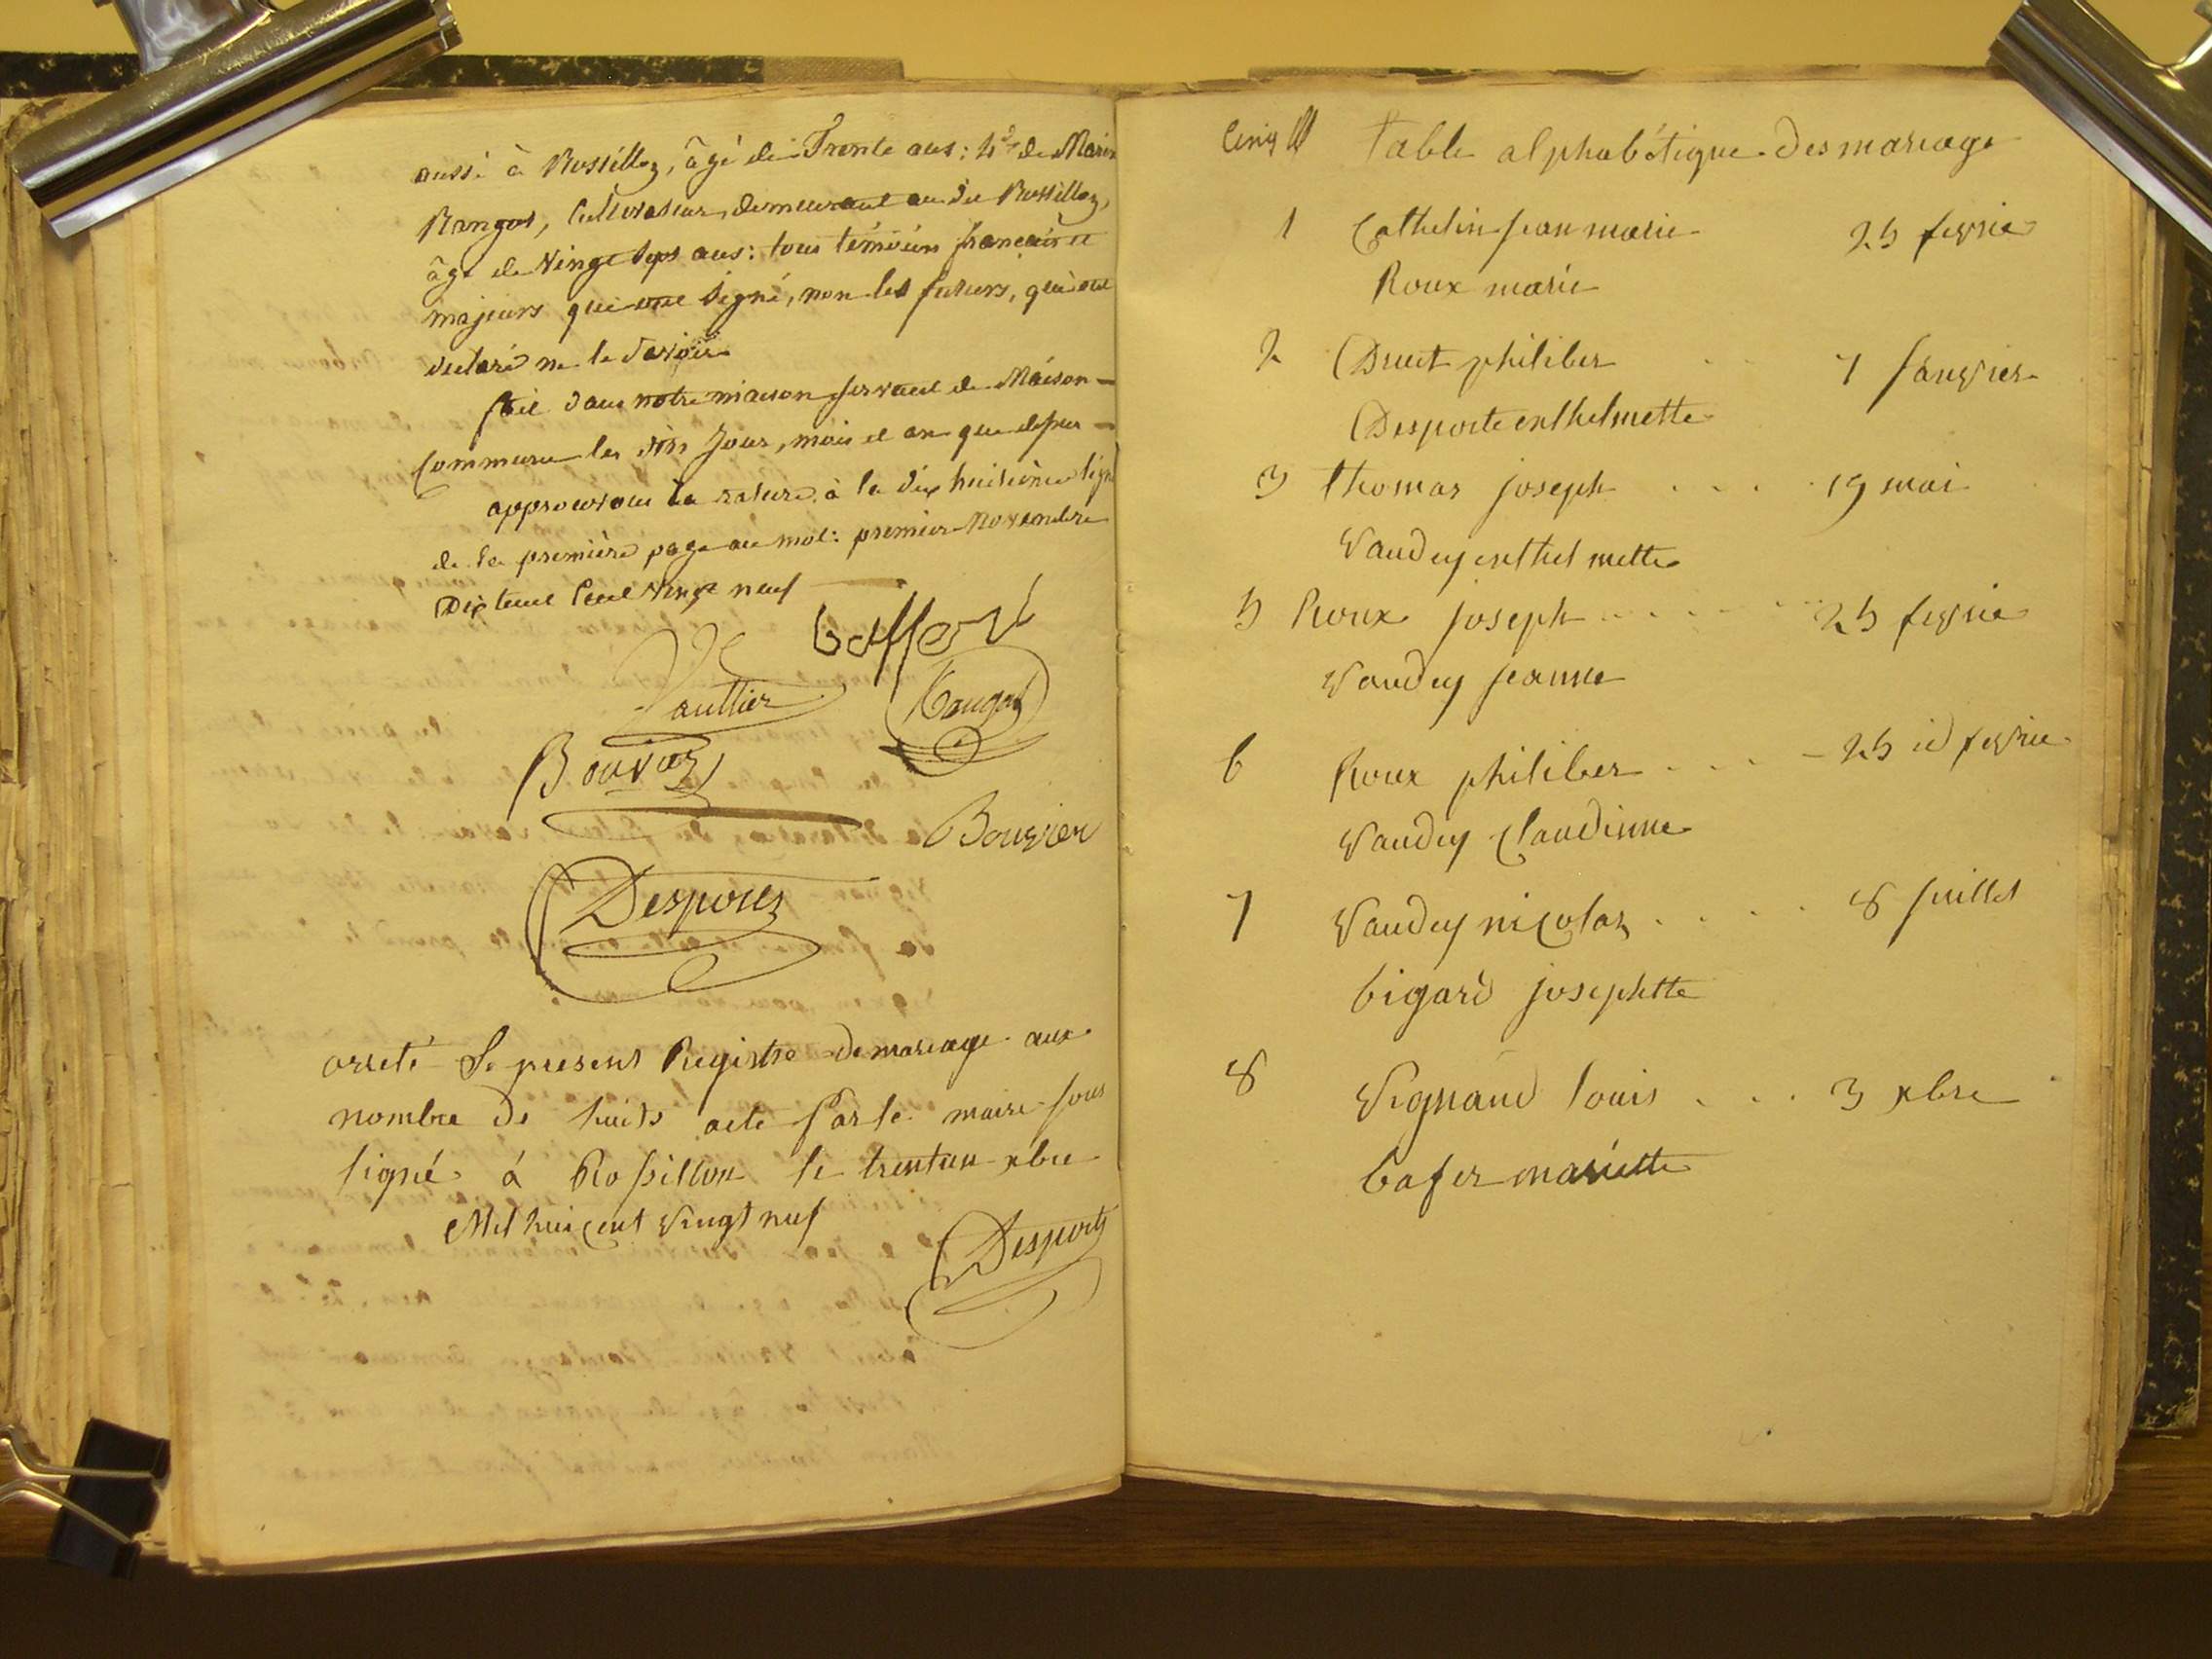 aussi à Rossillon, âgé de Trente ans: 4.e de Marin
Rangot, Cultivateur, demeurant au dit Rossillon,
âgé de Vingt sept ans: tous témoins français et
majeurs qui ont signé, non les futurs, qui ont
déclaré ne le savoir
fait dans notre maison servant de Maison
Commune les dits Jour, mois et an que dessus
approuvons la rature à la dix huitième lign
de la première page au mot: premier Novembre
Dix huit Cent Vingt neuf
Gaffert
Vaullier
Rangot
Bouvier
Desportes
arreté Le present Registre de mariage aux
nombre de huits acte Par le maire sous
signé à Rossillon le trentun xbre
Mil huit cent vingt neuf
Desporte
Table alphabétique Des mariage
1 Cathelin jean marie 25 fevrie
Roux marie
2 Druet philiber . . 7 janvier
Desporte enthelmette
3 thomas joseph . . . . 19 mai
Vaudey enthelmette
5 Roux joseph . . . . . 25 fevrie
Vaudey jeanne
6 Roux philiber . . . . 25 id fevrie
Vaudey Claudinne
7 Vaudey nicolas . . . . 8 juillet
bigard josephtte
8 Vignand louis . . . 3 xbre
mariette